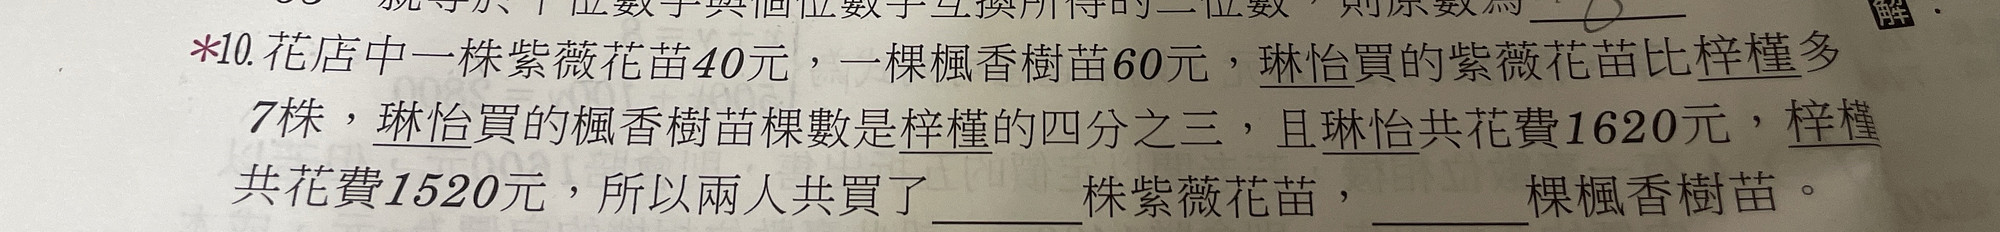 就等於十位數字與個位數字互換所得的二位數，則原數為
解
*10. 花店中一株紫薇花苗40元，一棵楓香樹苗60元，琳怡買的紫薇花苗比梓槿多
7株，琳怡買的楓香樹苗棵數是梓槿的四分之三，且琳怡共花費1620元，梓槿
共花費1520元，所以兩人共買了______株紫薇花苗，______棵楓香樹苗。